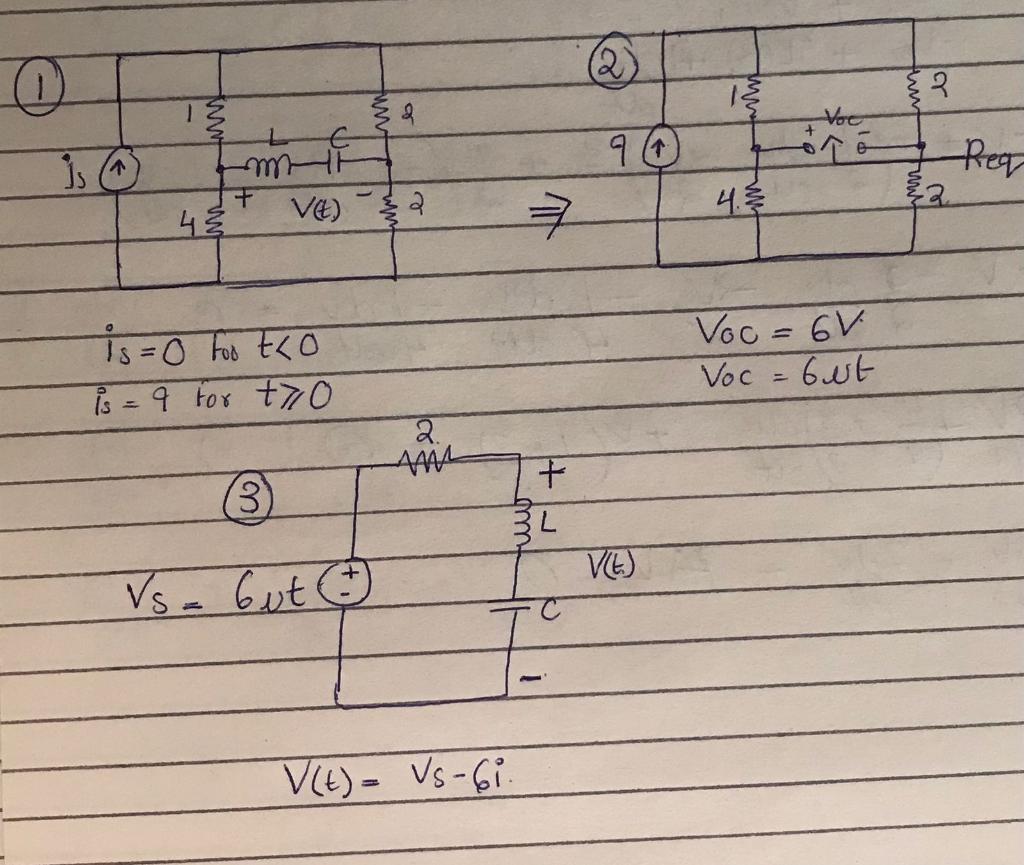 ①
1
2
L
C
is
+
V(t)
-
4
2
⇒
②
1
2
+
Voc
-
9
Req
4
2
is = 0 for t<0
is = 9 for t⩾0
Voc = 6V
Voc = 6ut
③
2
+
L
V(t)
Vs = 6ut
+
-
C
-
V(t) = Vs-6i